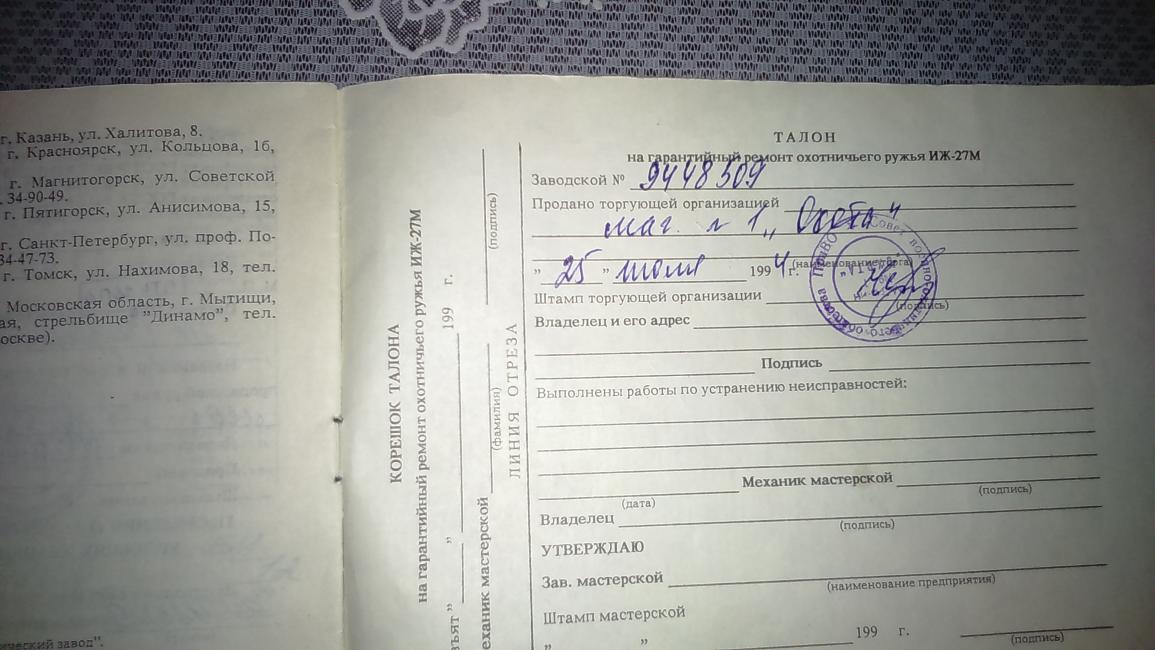 г. Казань, ул. Халитова, 8.
г. Красноярск, ул. Кольцова, 16,
г. Магнитогорск, ул. Советской
34-90-49.
г. Пятигорск, ул. Анисимова, 15,
г. Санкт-Петербург, ул. проф. По-
34-47-73.
г. Томск, ул. Нахимова, 18, тел.
Московская область, г. Мытищи,
ая, стрельбище "Динамо", тел.
оскве).
ический завод".
КОРЕШОК ТАЛОНА
на гарантийный ремонт охотничьего ружья ИЖ-27М
зъят " " 199 г.
еханик мастерской
(фамилия)
(подпись)
ЛИНИЯ ОТРЕЗА
ТАЛОН
на гарантийный ремонт охотничьего ружья ИЖ-27М
Заводской № 9448509
Продано торгующей организацией
маг. №1 „Охота"
(наименование торга)
" 25 " июля 1994 г.
(подпись)
Штамп торгующей организации
Владелец и его адрес
Подпись
Выполнены работы по устранению неисправностей:
Механик мастерской
(дата) (подпись)
Владелец
(подпись)
УТВЕРЖДАЮ
Зав. мастерской
(наименование предприятия)
Штамп мастерской
" " 199 г.
(подпись)